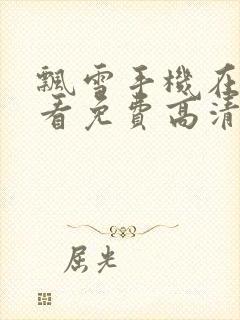 飄雪手機在
看免費高清
屈光